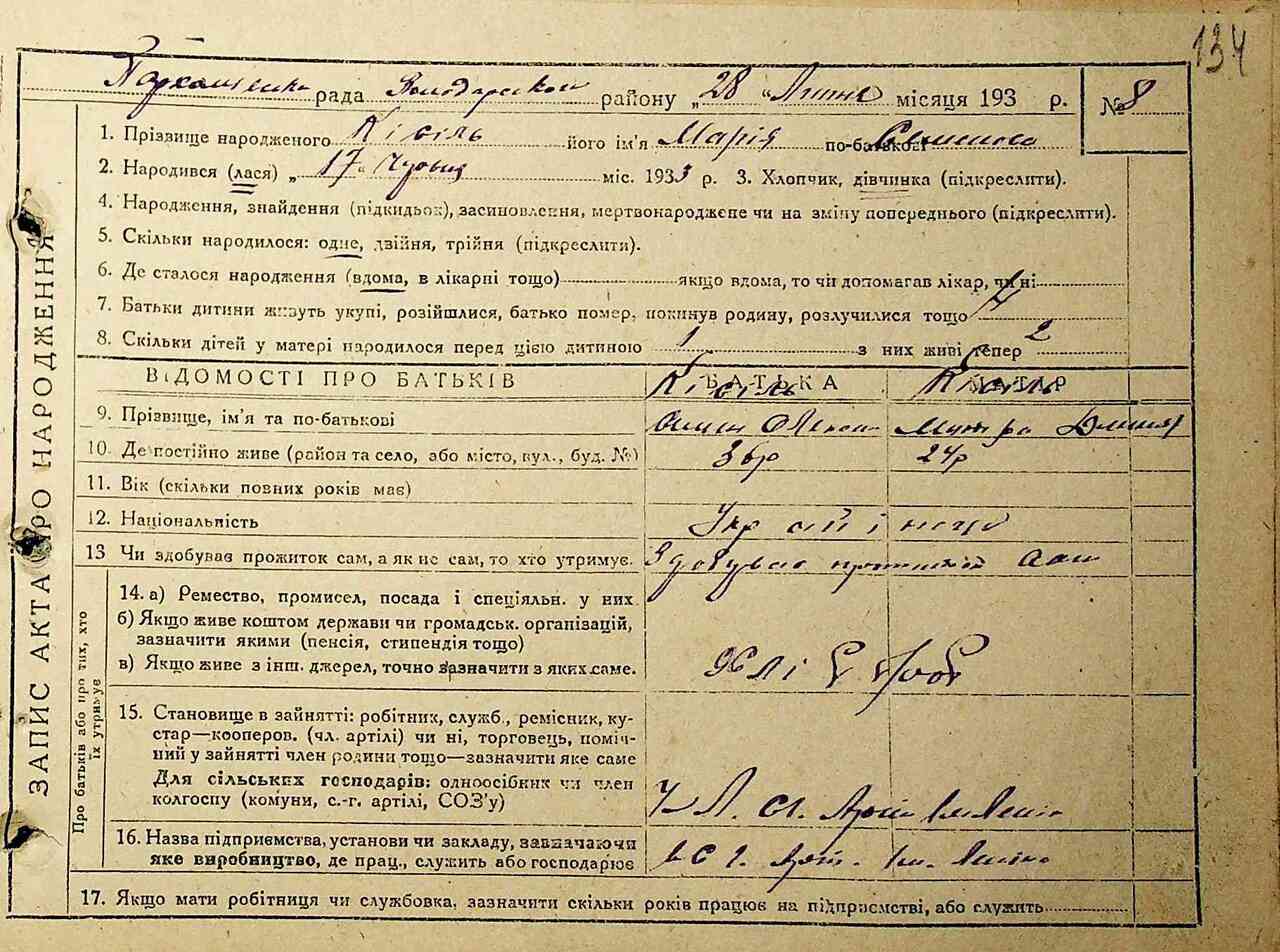 134
рада Володарського району „28 “ Липня місяця 193 р. № 8
1. Прізвище народженого Кісіль його ім'я Марія по-батькові
2. Народився (лася) „ 17 “ міс. 1933 р. 3. Хлопчик, дівчинка (підкреслити).
4. Народження, знайдення (підкидьок), засиновлення, мертвонароджене чи на зміну попереднього (підкреслити).
5. Скільки народилося: одне, двійня, трійня (підкреслити).
6. Де сталося народження (вдома, в лікарні тощо) якщо вдома, то чи допомагав лікар, чи ні
7. Батьки дитини живуть укупі, розійшлися, батько помер, покинув родину, розлучилися тощо
8. Скільки дітей у матері народилося перед цією дитиною 1 з них живі тепер 2
ВІДОМОСТІ ПРО БАТЬКІВ БАТЬКА МАТАР
Кісіль Кісіль
9. Прізвище, ім'я та по-батькові
10. Де постійно живе (район та село, або місто, вул., буд. №) 36р 24р
11. Вік (скільки повних років має)
12. Національність Українець
13 Чи здобуває прожиток сам, а як не сам, то хто утримує. Здобуває сам
14. а) Ремество, промисел, посада і спеціяльн. у них
б) Якщо живе коштом держави чи громадськ. організацій,
зазначити якими (пенсія, стипендія тощо)
в) Якщо живе з інш. джерел, точно зазначити з яких саме. Хлі
15. Становище в зайнятті: робітник, служб., ремісник, ку-
стар—кооперов. (чл. артілі) чи ні, торговець, поміч-
ний у зайнятті член родини тощо—зазначити яке саме
Для сільських господарів: одноосібник чи член
колгоспу (комуни, с.-г. артілі, СОЗ'у)
16. Назва підприємства, установи чи закладу, зазначаючи
яке виробництво, де прац., служить або господарює
17. Якщо мати робітниця чи службовка, зазначити скільки років працює на підприємстві, або служить
ЗАПИС АКТА ПРО НАРОДЖЕННЯ
Про батьків або про тих, хто
їх утримує